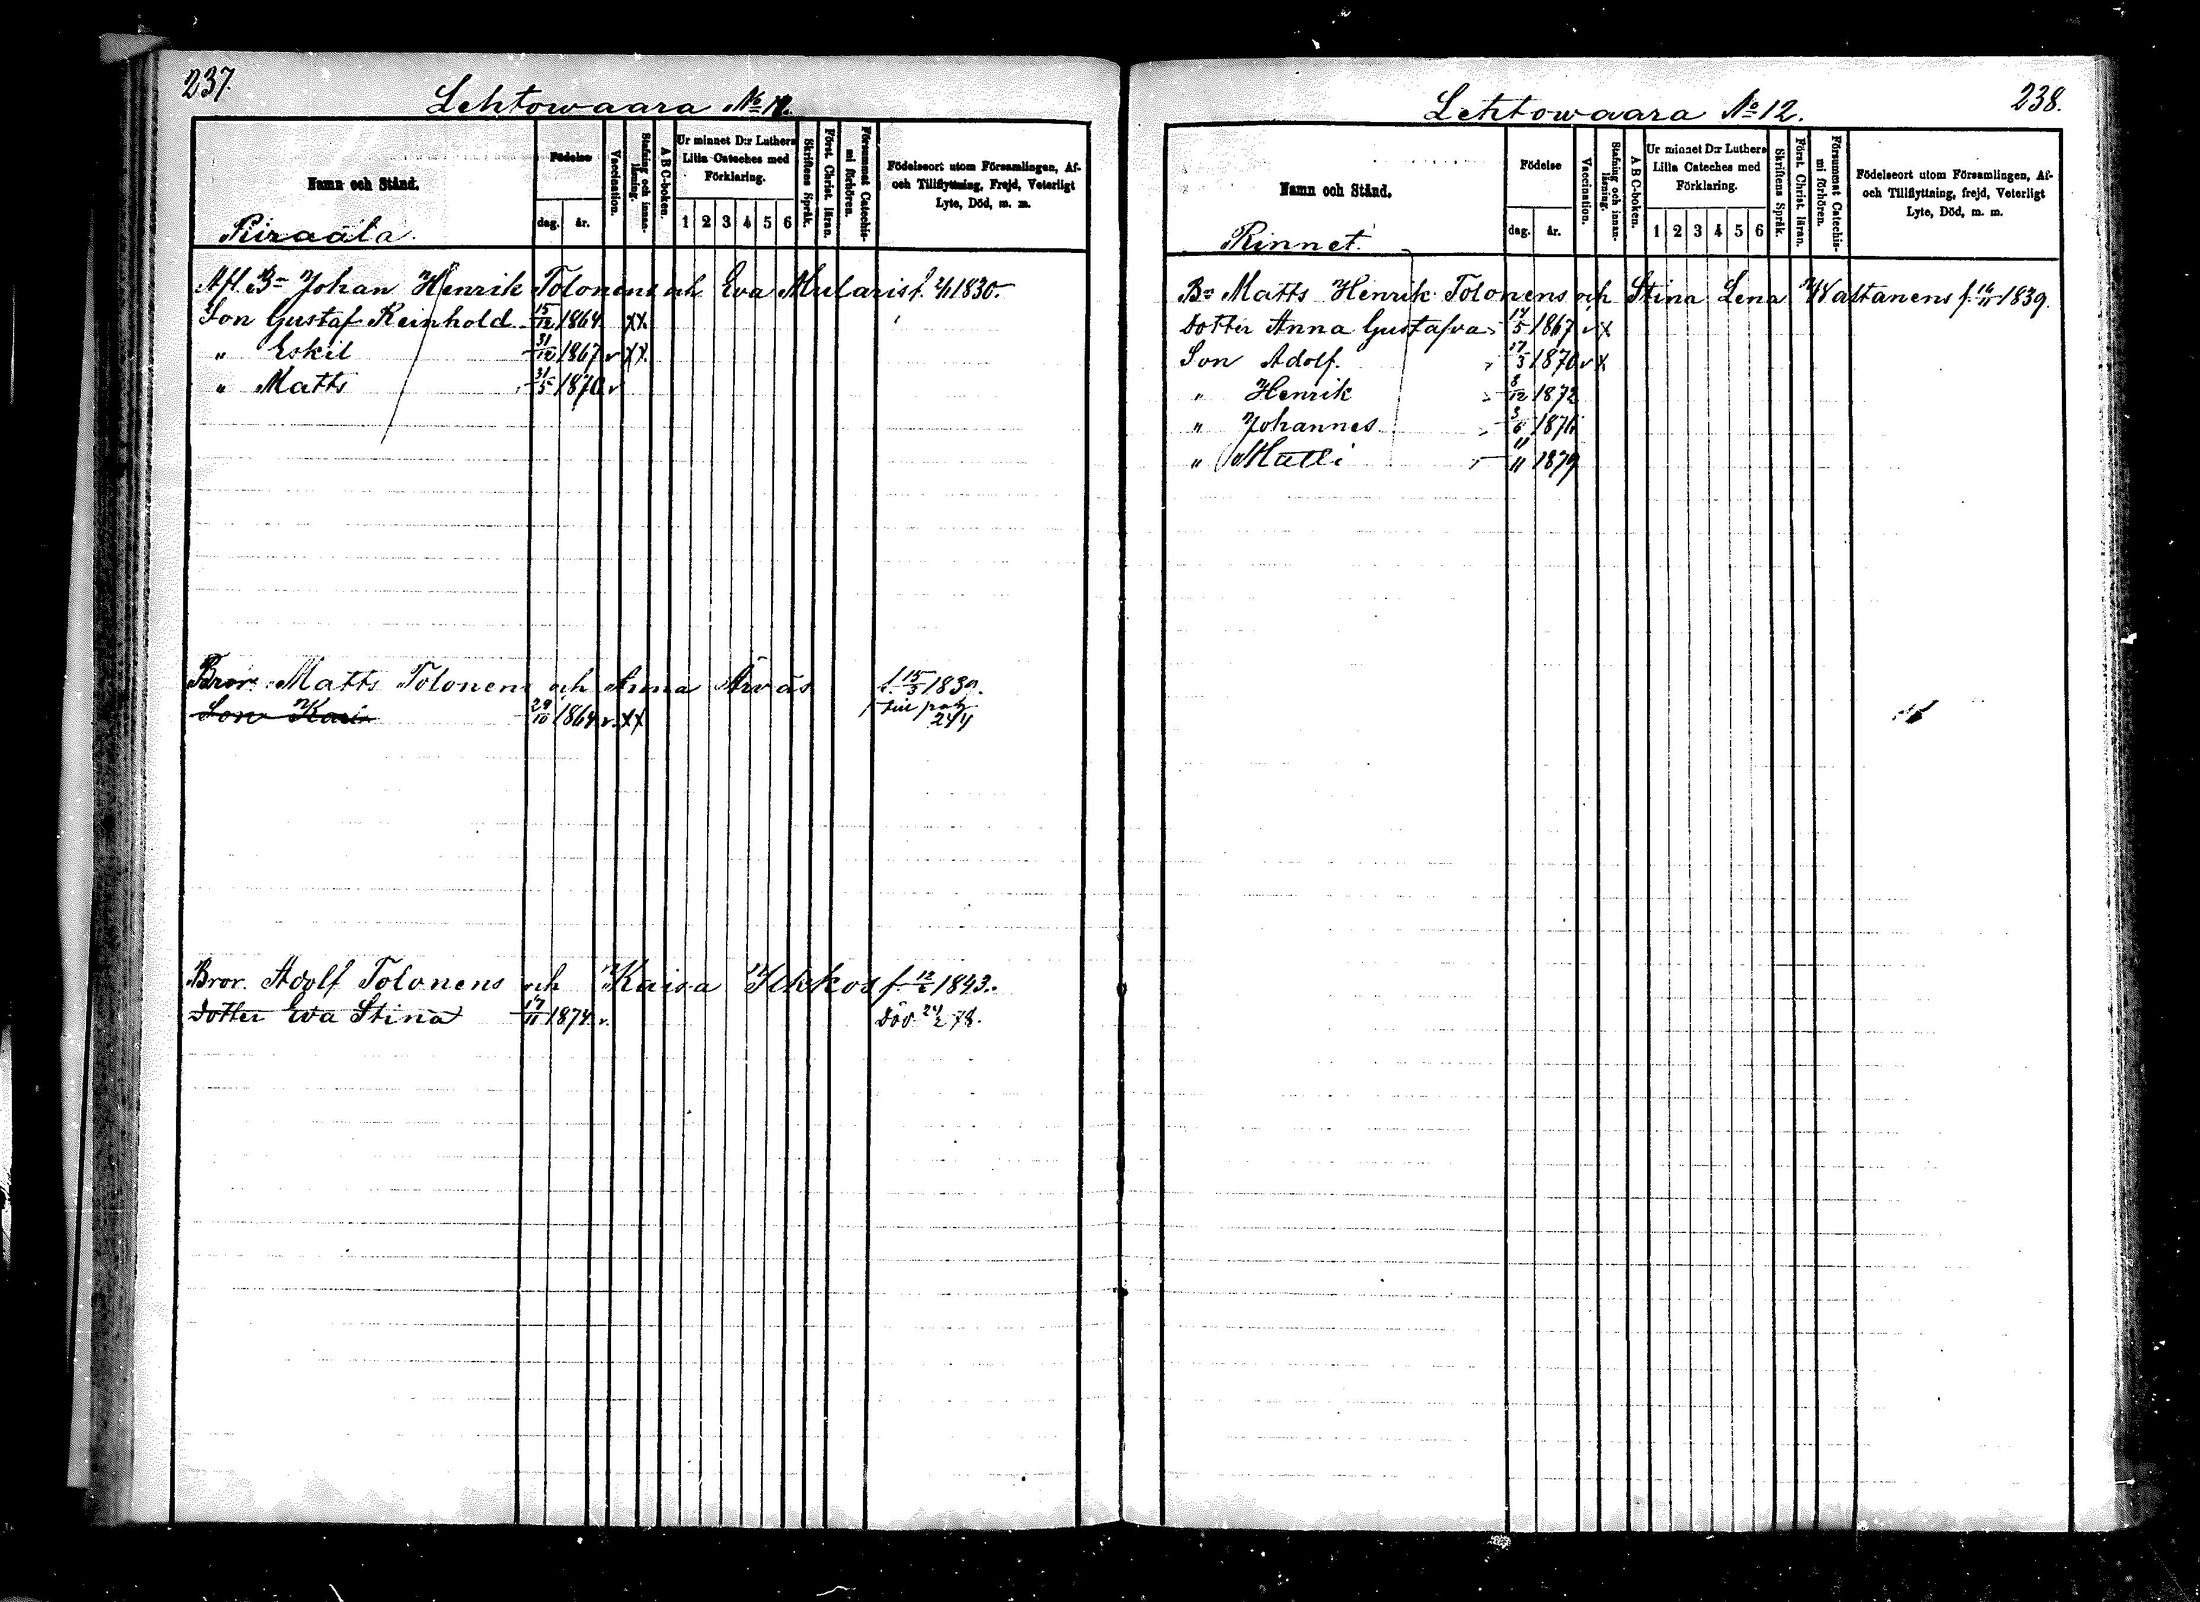 237.
Lehtowaara No 12.
Namn och Stånd.
Födelse
dag. år.
Vaccination.
Stafning och innanläsning.
A B C-boken.
Ur minnet D:r Luthers Lilla Cateches med Förklaring.
1 2 3 4 5 6
Skriftens Språk.
Först. Christ. läran.
Försummat Catechismi förhören.
Födelseort utom Församlingen, Af-
och Tillflyttning, Frejd, Veterligt
Lyte, Död, m. m.
Afl. Bn Johan Henrik Tolonens och Eva Mularis f. 1830.
Son Gustaf Reinhold 15/12 1864 xx
" Eskil 1867 v xx
" Matts 31/5 1870 v
Bror Matts Tolonens och Anna Ärväs f. 15/3 1839.
Son 29/10 1864 v. xx
Bror. Adolf Tolonens och Kaisa f. 12/6 1843.
Dotter Eva Stina 17/11 1874 v. Död 78.
238.
Lehtowaara No 12.
Namn och Stånd.
Rinnet.
Födelse
dag. år.
Vaccination.
Stafning och innanläsning.
A B C-boken.
Ur minnet D:r Luthers Lilla Cateches med Förklaring.
1 2 3 4 5 6
Skriftens Språk.
Först. Christ. läran.
Försummat Catechismi förhören.
Födelseort utom Församlingen, Af-
och Tillflyttning, frejd, Veterligt
Lyte, Död, m. m.
Bn Matts Henrik Tolonens och Stina Lena Waltanens f. 1839.
Dotter Anna Gustafva 14/5 1867 v x
Son Adolf. 17/3 1870 v x
" Henrik 8/12 1872
" Johannes 3/6 1876
" Matti 11/11 1879